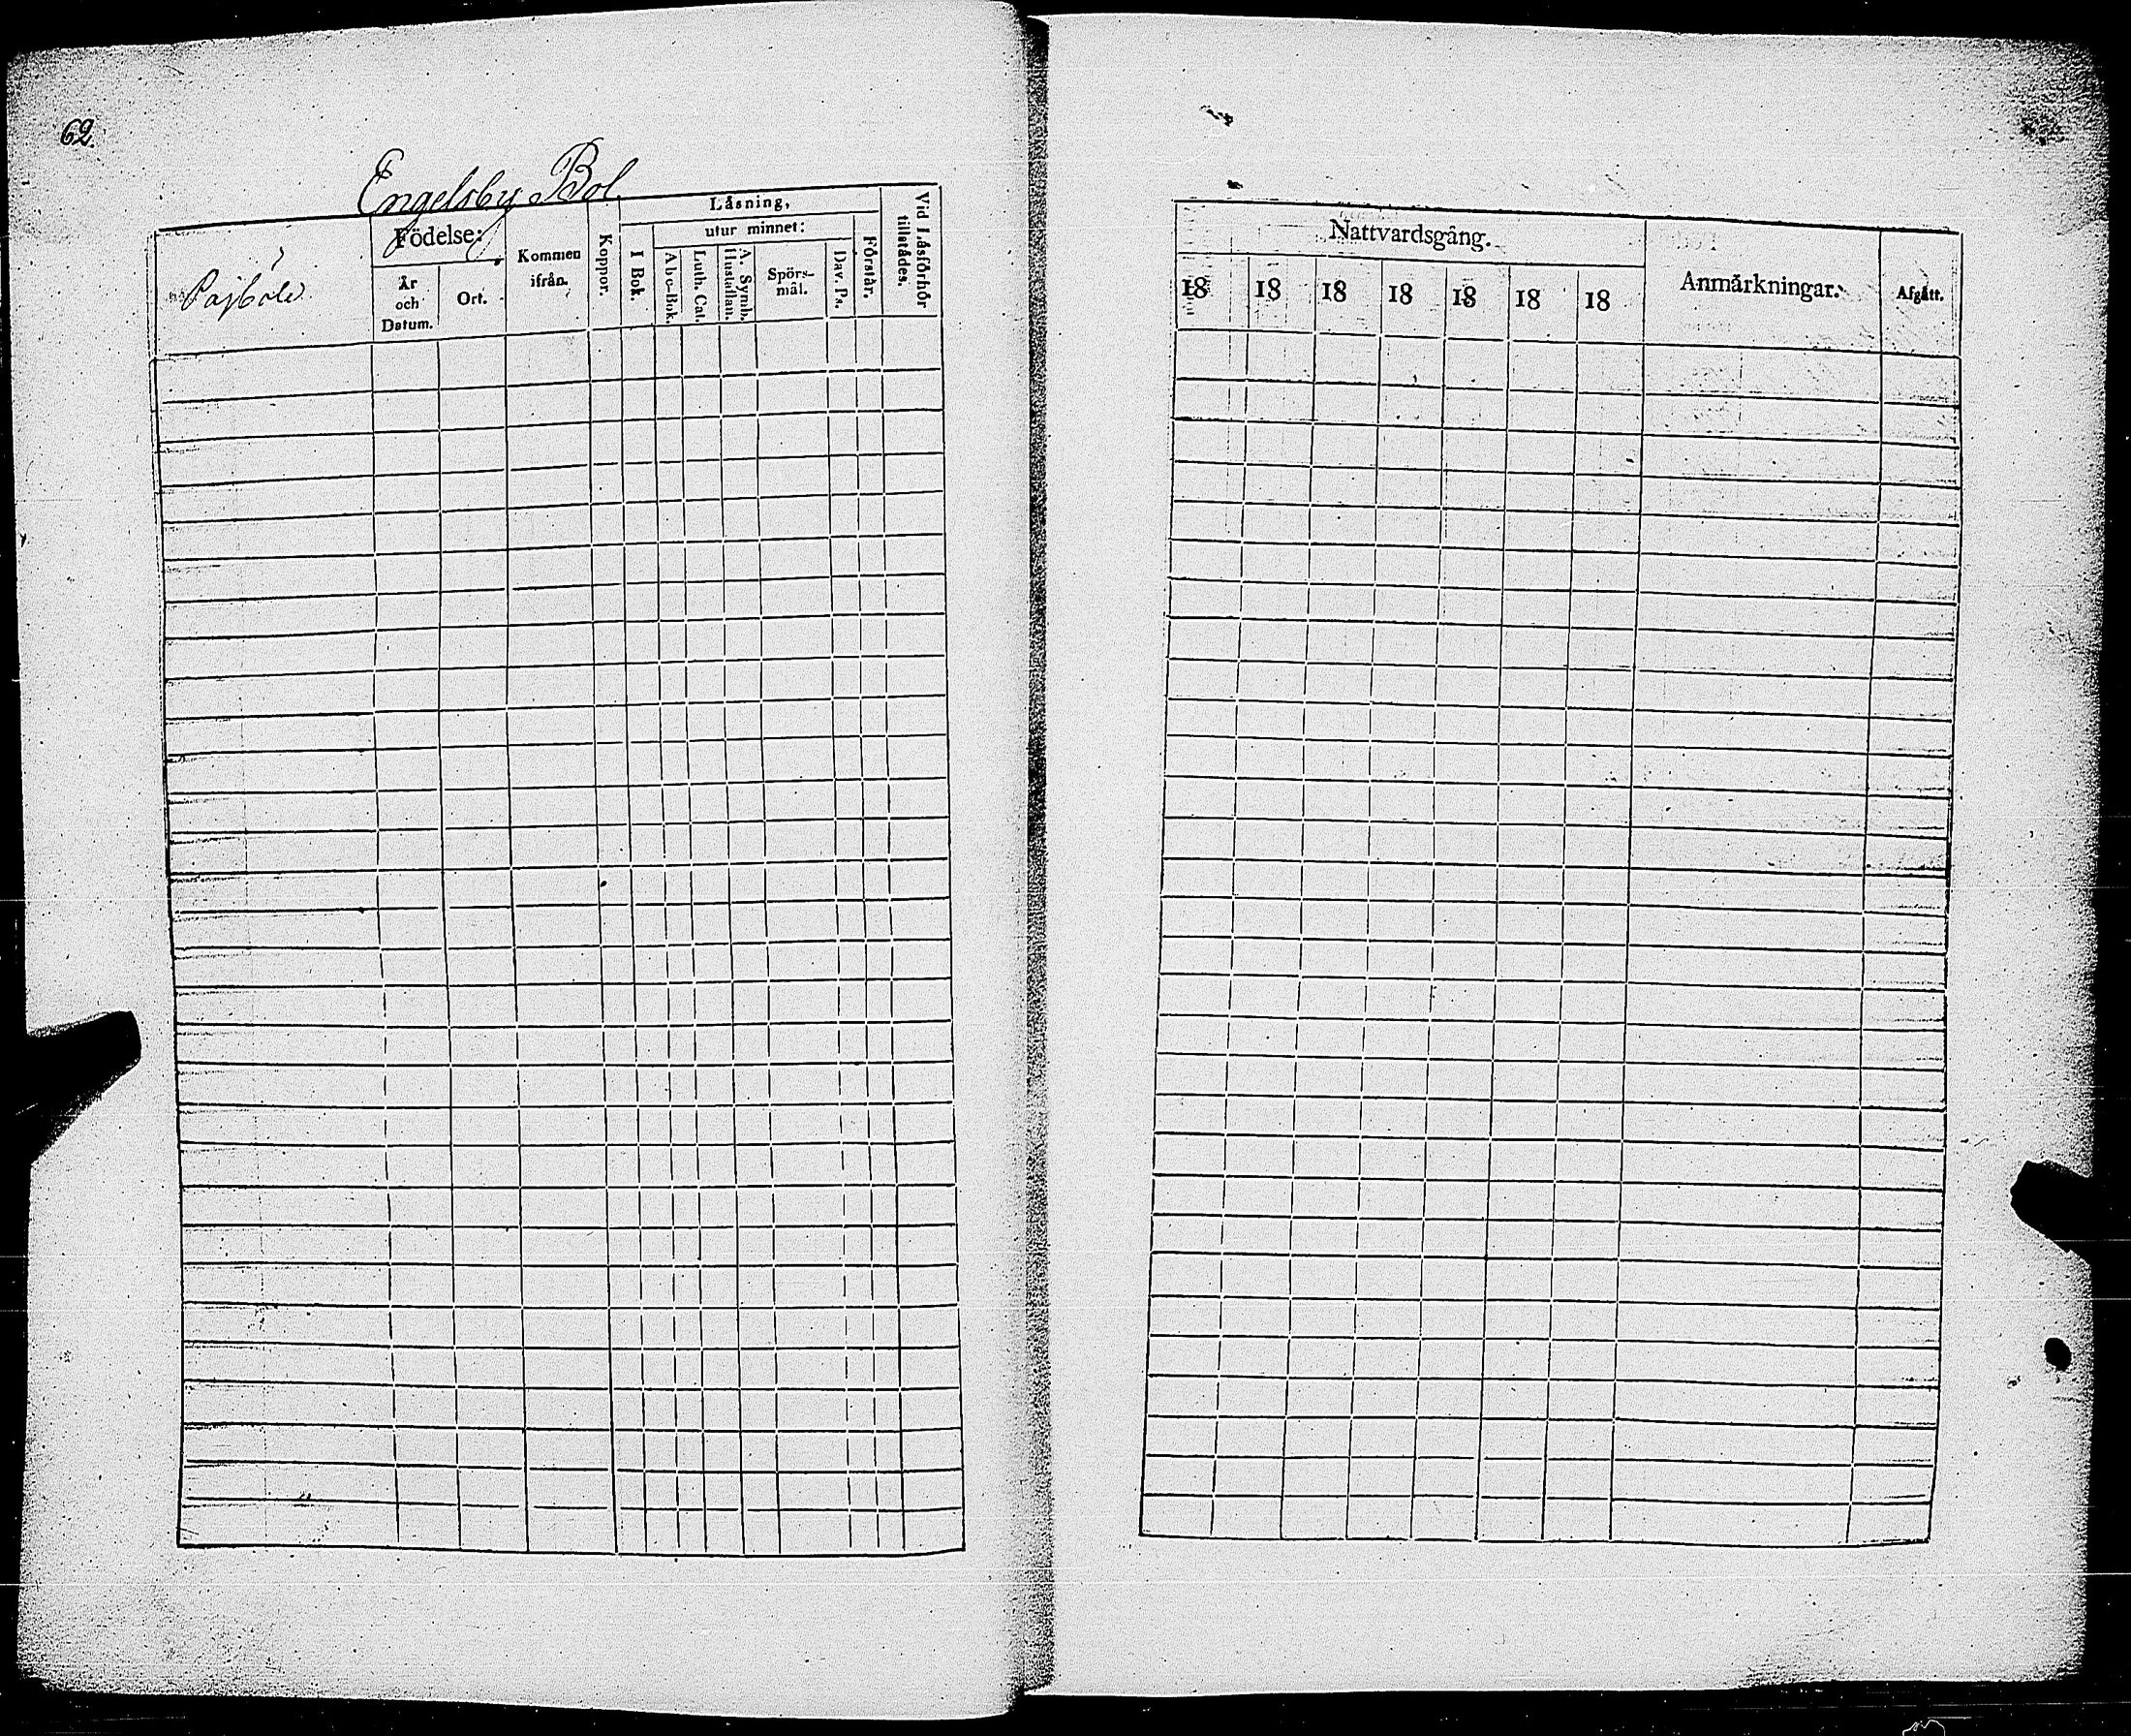 62.
Engelsby Bol.
Pajböle
Födelse:
År
och
Datum.
Ort.
Kommen
ifrån.
Koppor.
Läsning,
I Bok.
utur minnet:
Abc-Bok.
Luth. Cat.
A. Symb.
Hustaflan.
Spörs-
mål.
Dav. Ps.
Förstår.
Vid Läsförhör
tillstädes.
Nattvardsgång.
18 18 18 18 18 18 18
Anmärkningar.
Afgått.